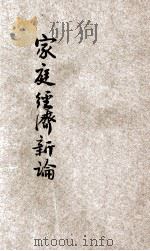 家庭經濟新論
mtoou.info